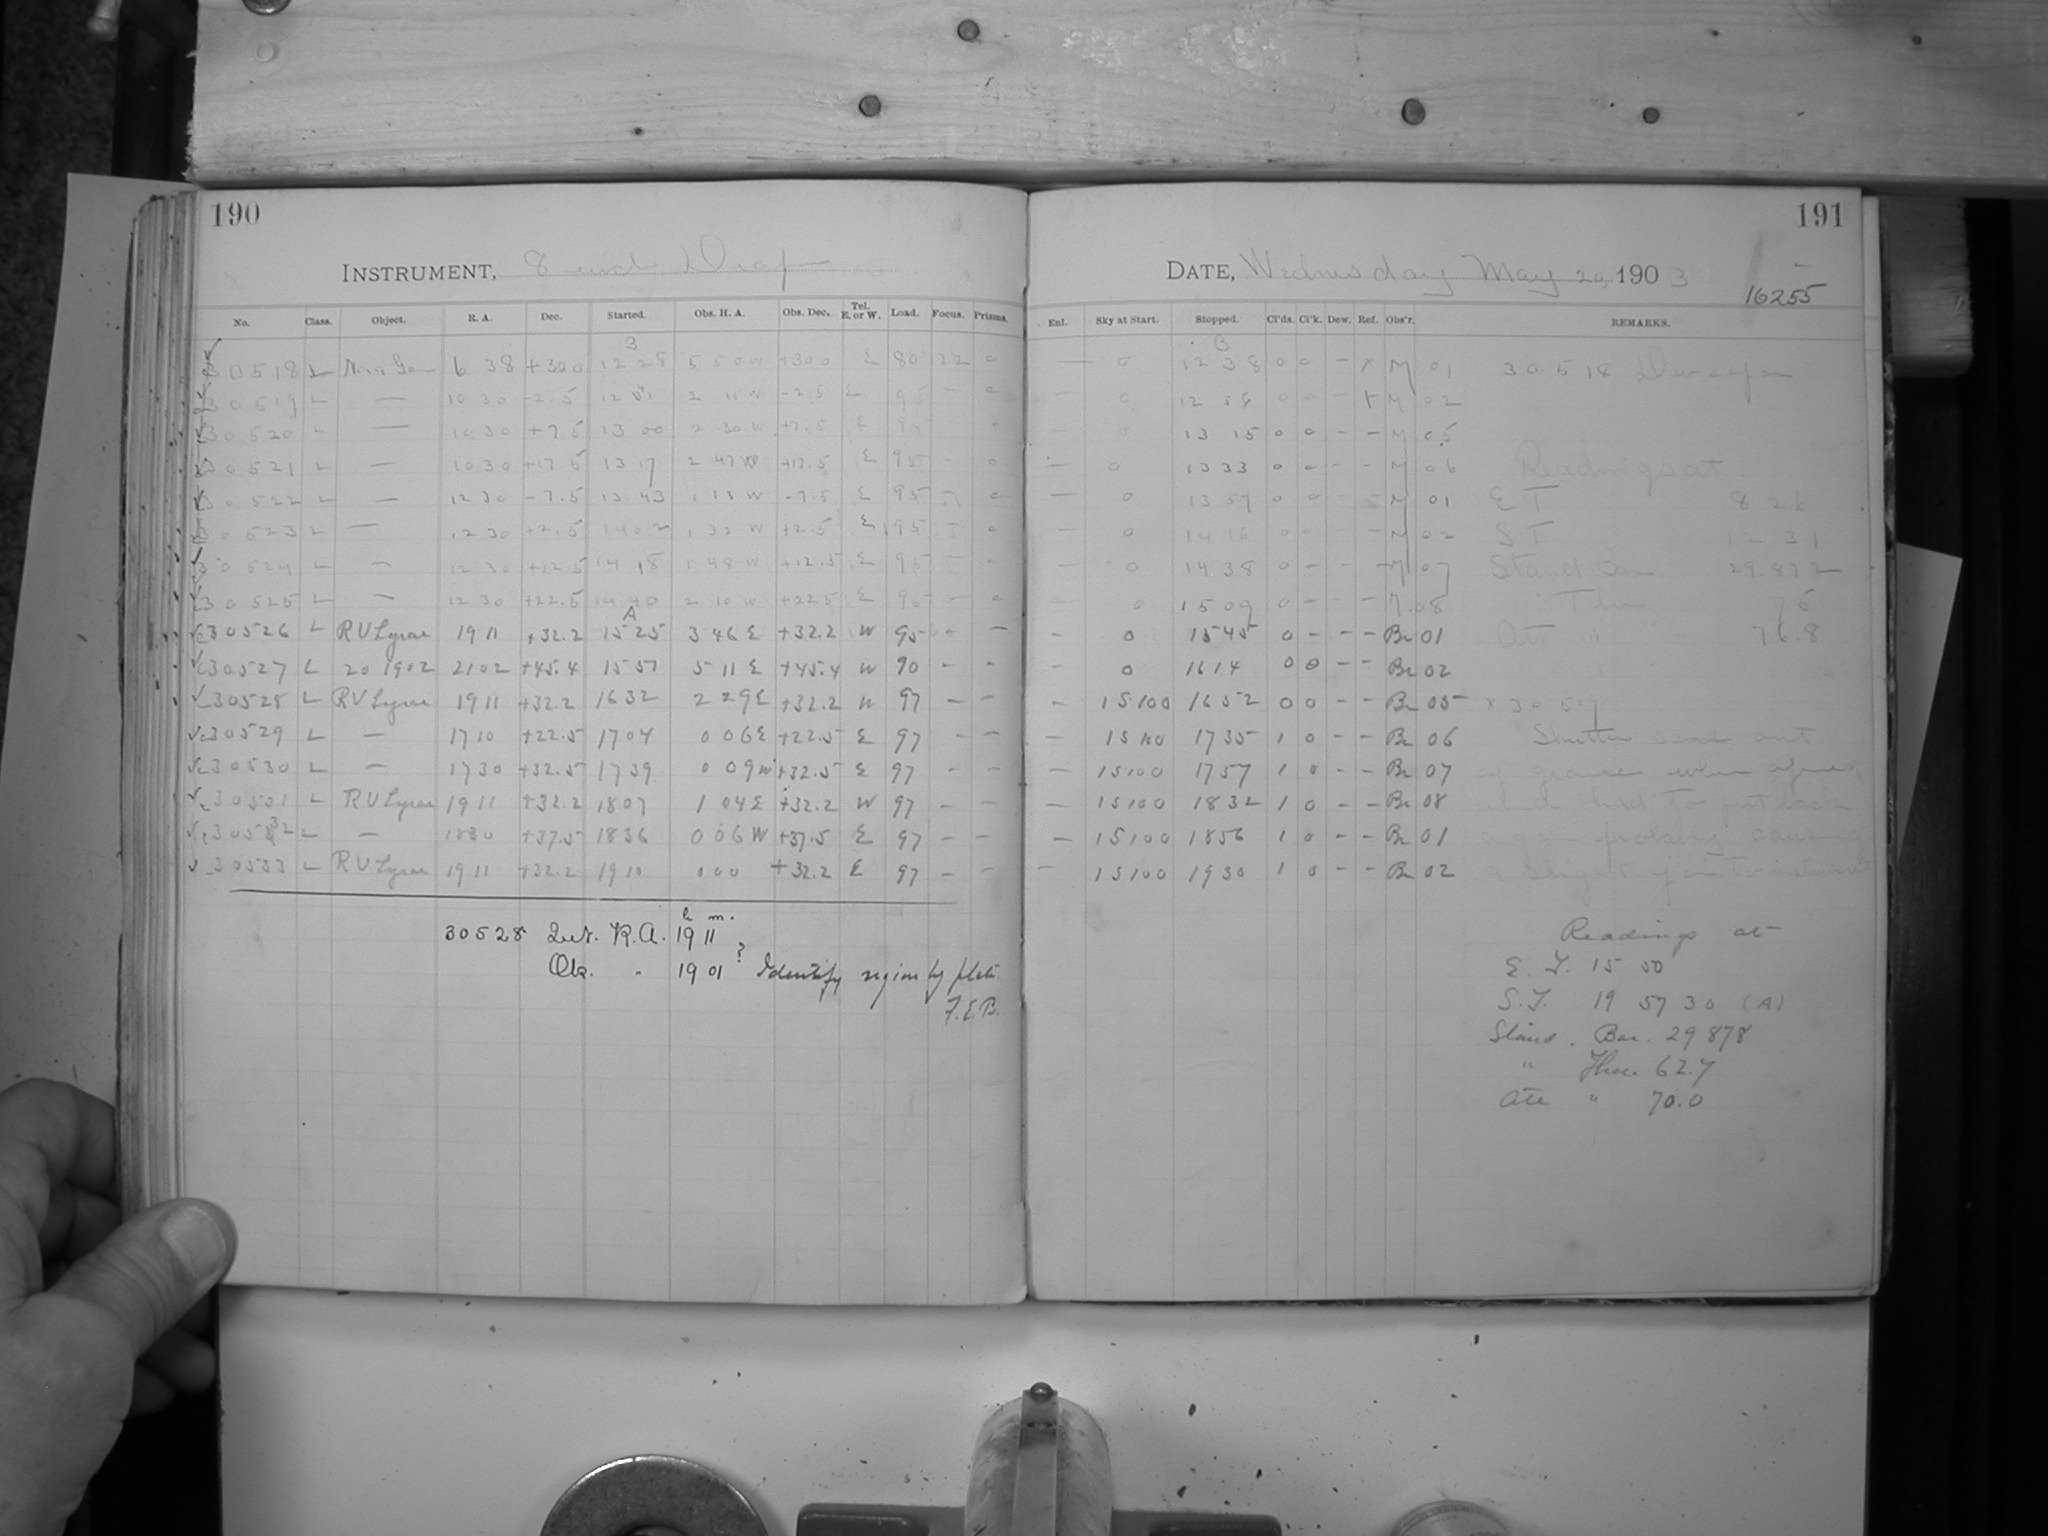 190
INSTRUMENT, 8 inch Drap
No. Class. Object. R. A. Dec. Started. Obs. H. A. Obs. Dec. Tel. E. or W. Load. Focus. Prisms.
B
30518 L Nova Gem 6 38 +30.0 12 28 5 50 W +30.0 E 80 22 0
30519 L — 10 30 -2.5 12 2 11 W -2.5 E 95 - 0
30520 L — 10 30 +7.5 13 00 2 30 W +7.5 E 95 - 0
30521 L — 10 30 +17.5 13 17 2 47 W +17.5 E 95 - 0
30522 L — 12 30 -7.5 13 43 1 13 W -7.5 E 95 0
30523 L — 12 30 +2.5 14 02 1 32 W +2.5 E 95 0
30524 L — 12 30 +12.5 14 18 1 48 W +12.5 E 95 - -
30525 L — 12 30 +22.5 14 40 2 10 W +22.5 E 95 - 0
A
30526 L RV Lyrae 19 11 +32.2 15 25 3 46 E +32.2 W 95 - -
30527 L 20 1902 21 02 +45.4 15 51 5 11 E +45.4 W 90 - -
30528 L RV Lyrae 19 11 +32.2 16 32 2 29 E +32.2 W 97 - -
30529 L — 17 10 +22.5 17 04 0 06 E +22.5 E 97 - -
30530 L — 17 30 +32.5 17 39 0 09 W +32.5 E 97 - -
30531 L RV Lyrae 19 11 +32.2 18 07 1 04 E +32.2 W 97 - -
30532 L — 18 30 +37.5 18 36 0 06 W +37.5 E 97 - -
30533 L RV Lyrae 19 11 +32.2 19 10 1 00 +32.2 E 97 - -
h m.
30528 Int. R.A. 19 11
Obs. " 19 01 ? Identify region by plate.
F.E.B.
191
DATE, Wednesday May 20, 1903
16255
Enl. Sky at Start. Stopped. Cl'ds. Cl'k. Dew. Ref. Obs'r. REMARKS.
B
— 0 12 38 0 0 - x M 01 30518
— 0 12 56 0 0 - x M 02
— 0 13 15 0 0 - - M 05
— 0 13 33 0 0 - - M 06 Readings at
— 0 13 57 0 0 - - M 01 E T 8 26
— 0 14 16 0 0 - - M 02 S T 12 31
— 0 14 38 0 - - - M 07 Stand Bar 29.872
— 0 15 09 0 - - M 08 Ther 76
— 0 15 45 0 - - - Br 01 Att " 76.8
— 0 16 14 0 0 - - Br 02
— 15100 16 52 0 0 - - Br 05 x 30519
— 15100 17 35 1 0 - - Br 06 Shutter came out
— 15100 17 57 1 0 - - Br 07 of groove when
— 15100 18 32 1 0 - - Br 08 had to put back
— 15100 18 56 1 0 - - Br 01 again probably causing
— 15100 19 30 1 0 - - Br 02 a slight
Readings at
E. T. 15 50
S.T. 19 57 30 (A)
Stand. Bar. 29 878
" Ther. 62.7
Att " 70.0